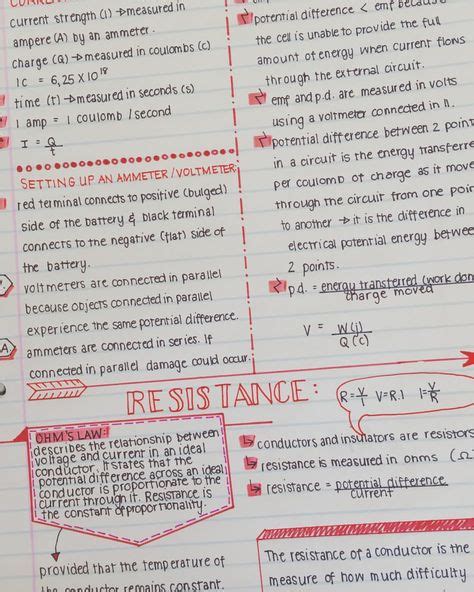 current strength (I) → measured in
ampere (A) by an ammeter.
charge (Q) → measured in coulombs (c)
1C = 6,25 X 10¹⁸
time (t) → measured in seconds (s)
1 amp = 1 coulomb / second
I = Q/t
SETTING UP AN AMMETER / VOLTMETER:
red terminal connects to positive (bulged)
side of the battery & black terminal
connects to the negative (flat) side of
the battery.
V.
voltmeters are connected in parallel
because objects connected in parallel
experience the same potential difference.
A
ammeters are connected in series. If
connected in parallel damage could occur.
potential difference < emf because
the cell is unable to provide the full
amount of energy when current flows
through the external circuit.
emf and p.d. are measured in volts
using a voltmeter connected in II.
potential difference between 2 point
in a circuit is the energy transferre
per coulomb of charge as it move
through the circuit from one poi
to another → it is the difference in
electrical potential energy betwee
2 points.
p.d. = energy transferred (work don
charge moved
V = W(j)
Q(c)
RESISTANCE:
R=V/I V=R.I I=V/R
OHM'S LAW:
describes the relationship between
voltage and current in an ideal
conductor. It states that the
potential difference across an ideal
conductor is proportionate to the
current through it. Resistance is
the constant of proportionality.
provided that the temperature of
the conductor remains constant.
conductors and insulators are resistors
resistance is measured in ohms (Ω
resistance = potential difference
current
The resistance of a conductor is the
measure of how much difficulty